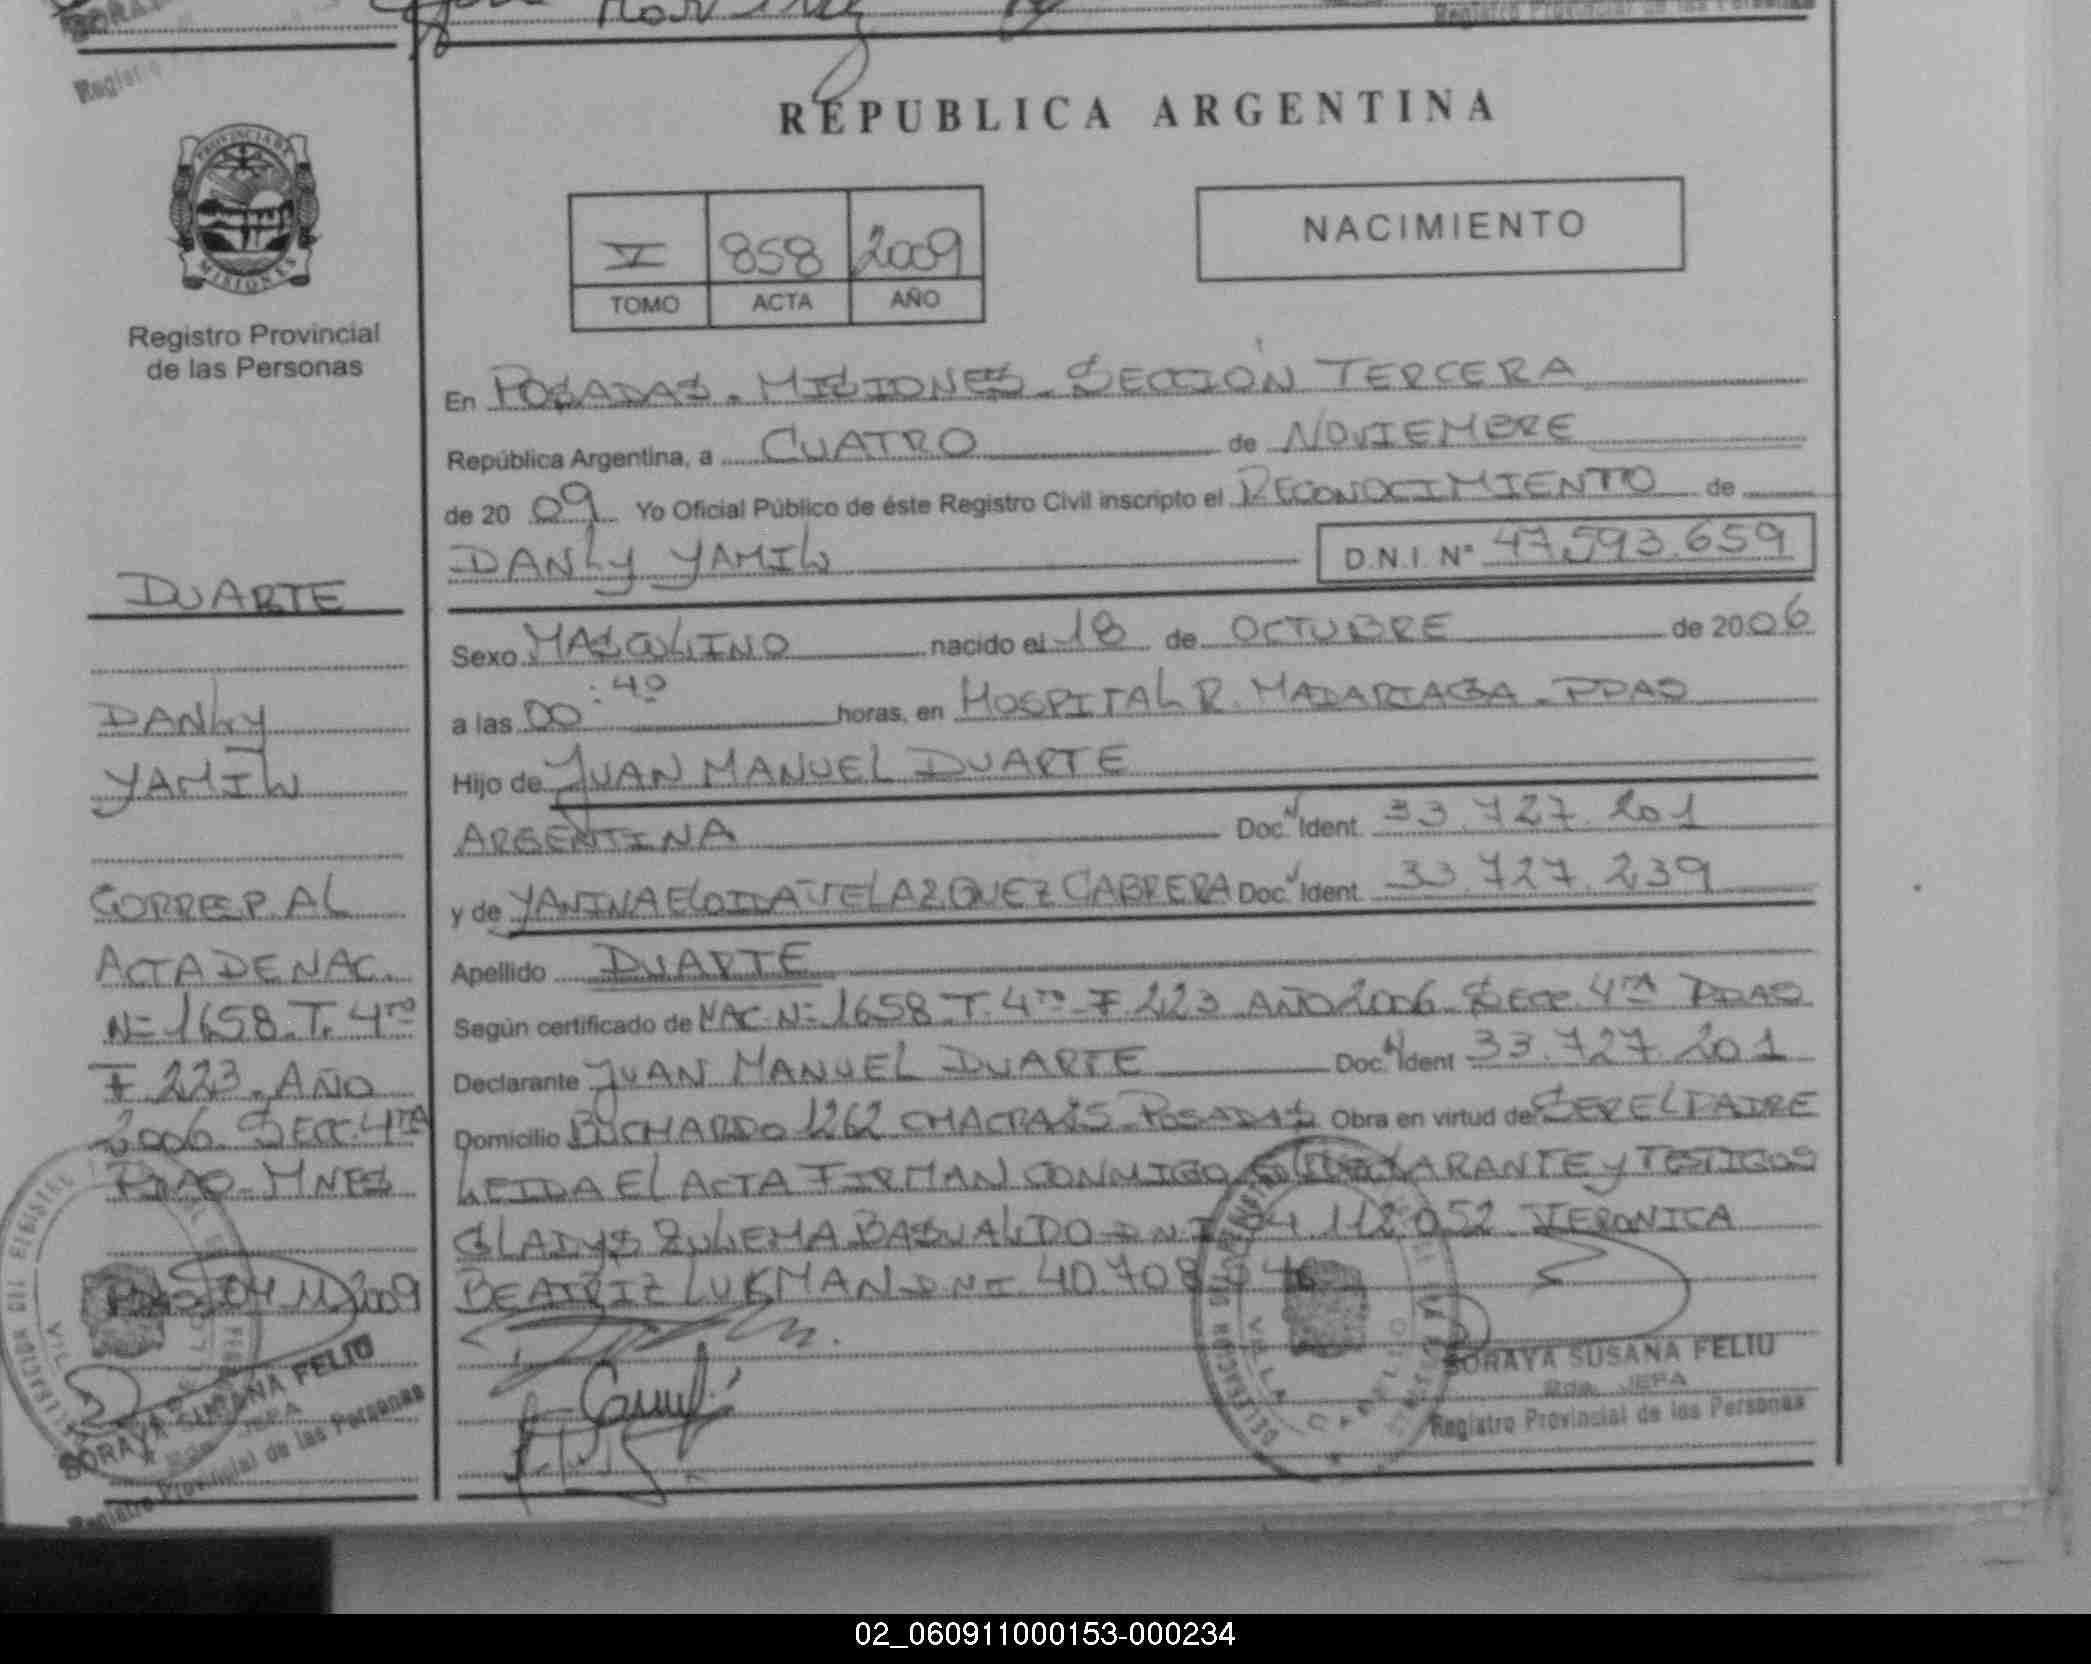 REPUBLICA ARGENTINA
PROVINCIA DE
MISIONES
Registro Provincial
de las Personas
V 858 2009
TOMO ACTA AÑO
NACIMIENTO
En POSADAS - MISIONES - SECCIÓN TERCERA
República Argentina, a CUATRO de NOVIEMBRE
de 2009 Yo Oficial Público de éste Registro Civil inscripto el RECONOCIMIENTO de
DANLY YAMIL D.N.I. Nº 47.593.659
Sexo MASCULINO nacido el 18 de OCTUBRE de 2006
a las 00:40 horas, en HOSPITAL R. MADARIAGA - PDAS
Hijo de JUAN MANUEL DUARTE
ARGENTINA Doc. Ident. 33.727.201
y de YANINA ELOIDA VELAZQUEZ CABRERA Doc. Ident. 33.727.239
Apellido DUARTE
Según certificado de NAC. Nº 1658 - T. 4to - F. 223 - AÑO 2006 - SECC. 4TA PDAS
Declarante JUAN MANUEL DUARTE Doc. Ident 33.727.201
Domicilio BUCHARDO 1262 CHACRA 85 - POSADAS Obra en virtud de SER EL PADRE
LEIDA EL ACTA FIRMAN CONMIGO DECLARANTE Y TESTIGOS
GLADYS ZULEMA BASUALDO DNI 112.052 VERONICA
BEATRIZ LUKMAN DNI 40.708
SORAYA SUSANA FELIU
JEFA
Registro Provincial de las Personas
DUARTE
DANLY
YAMIL
CORRESP. AL
ACTA DE NAC.
Nº 1658 - T. 4to
F. 223 - AÑO
2006 - SECC. 4TA
PDAS - MNES
04.11.2009
SORAYA SUSANA FELIU
JEFA
Registro Provincial de las Personas
02_060911000153-000234